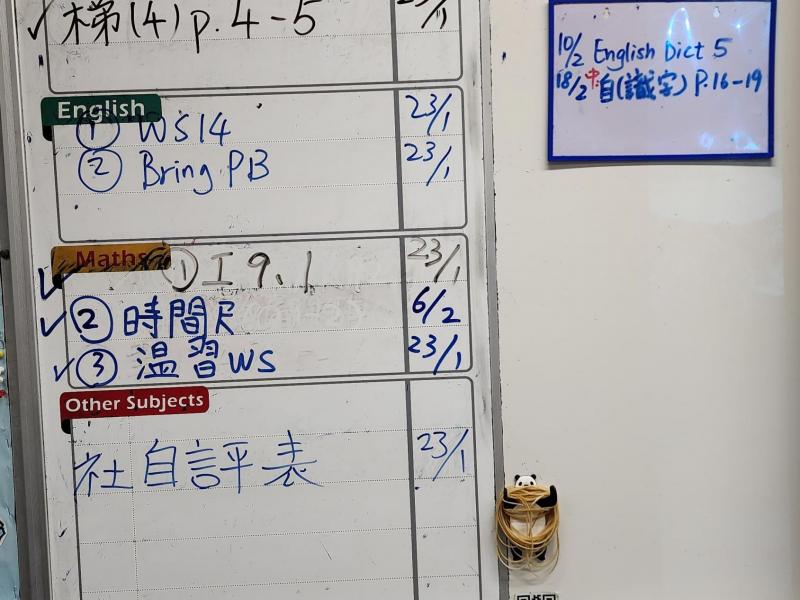 梯(4) p. 4-5 23/1
English
① WS14 23/1
② Bring PB 23/1
Maths
① 工 9.1 23/1
② 時間尺 6/2
③ 温習WS 23/1
Other Subjects
社自評表 23/1
10/2 English Dict 5
18/2 中 自(識字) P.16-19